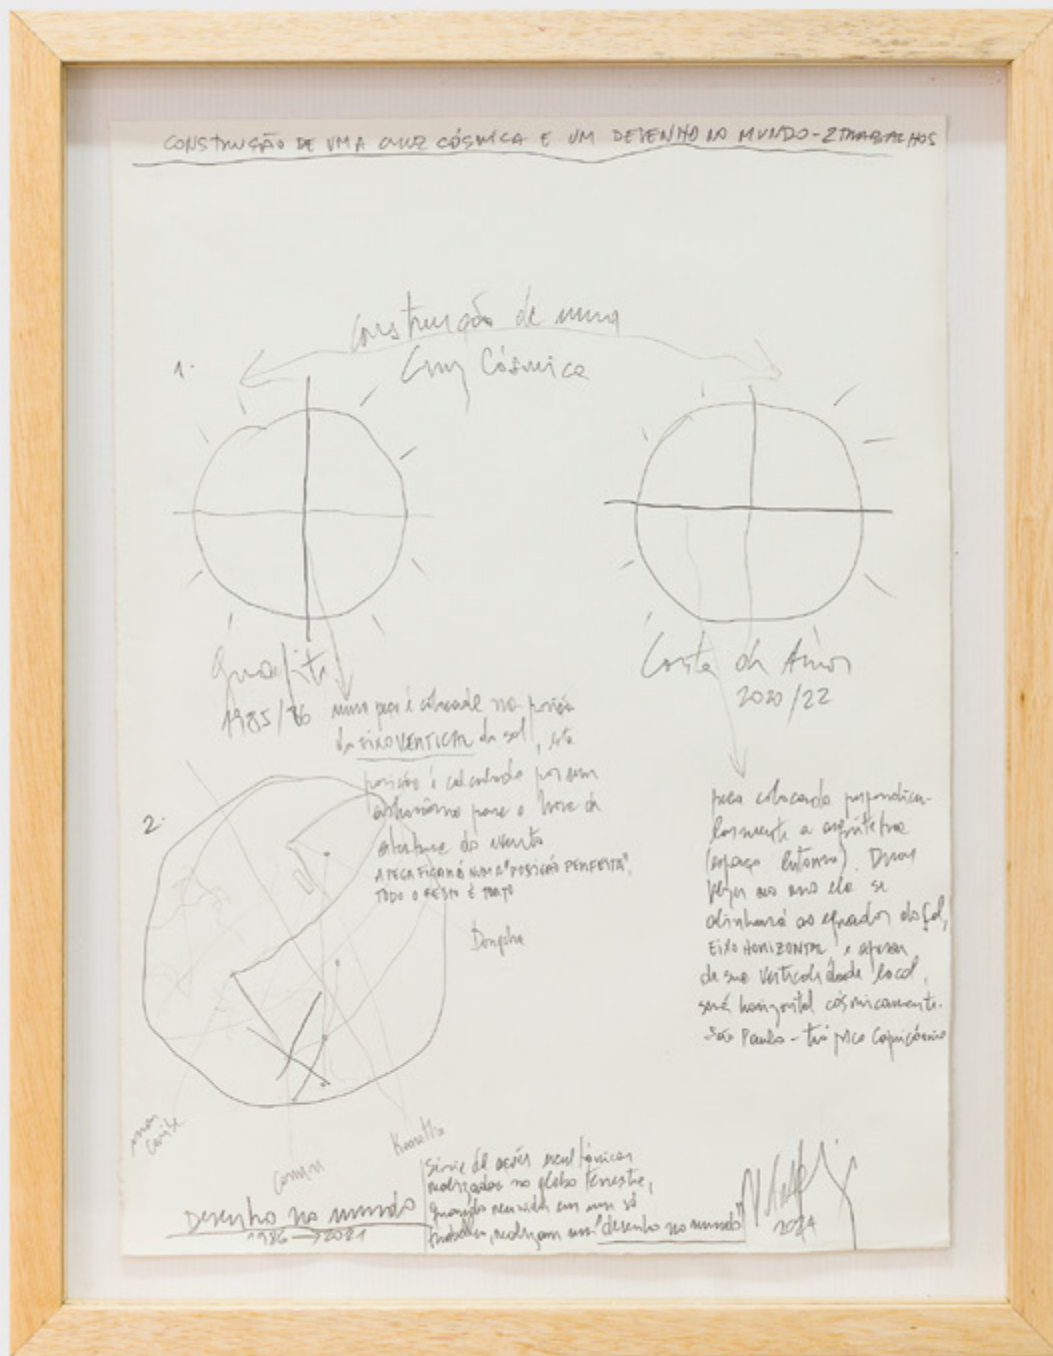 CONSTRUÇÃO DE UMA CRUZ CÓSMICA E UM DESENHO NO MUNDO - 2 TRABALHOS
Construção de uma
Cruz Cósmica
1.
1985/86
2020/22
uma peça é colocada na posição
do EIXO VERTICAL do sol, esta
posição é calculada por um
astrônomo para a hora da
abertura do evento
A PEÇA FICARÁ NUMA "POSIÇÃO PERFEITA",
TODO O RESTO É TORTO
2.
peça colocada perpendicu-
larmente a arquitetura
(espaço entorno). Duas
vezes ao ano ela se
alinhará ao equador do Sol,
EIXO HORIZONTAL e apesar
de sua verticalidade local,
será horizontal cósmicamente.
São Paulo - trópico Capricórnio
Desenho no mundo
1986 → 2021
Série de ações escultóricas
realizadas no globo terrestre,
quando reunidas em um só
trabalho, realizam um "desenho no mundo"
2024